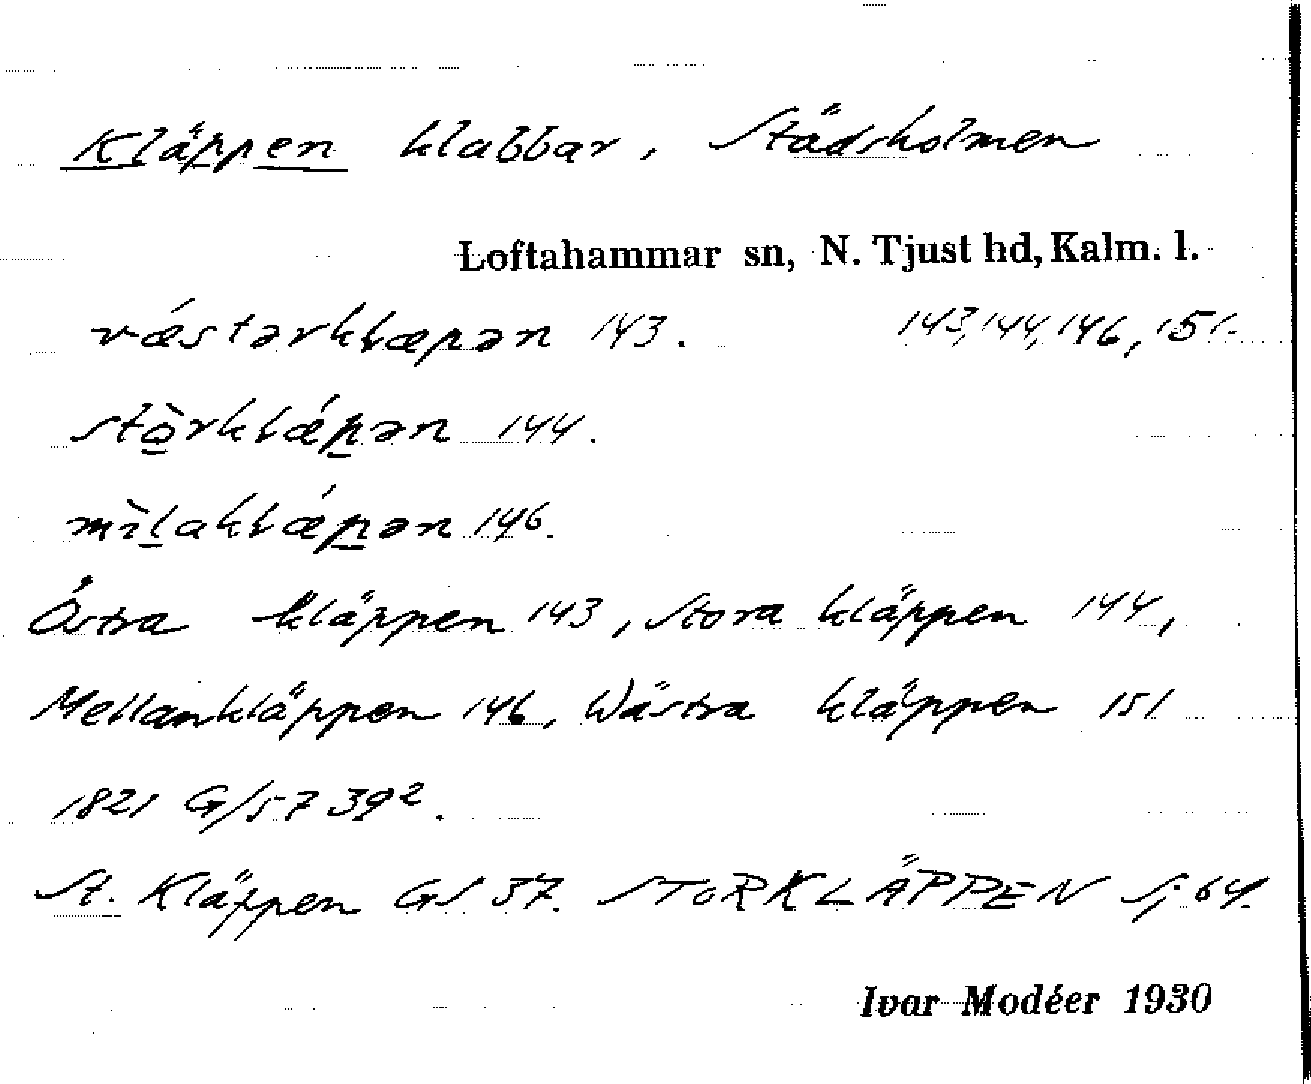 Kläppen klabbar, Städsholmen
Loftahammar sn, N. Tjust hd, Kalm. l.
vǽstərkłæpən 143. 143, 144, 146, 151.
stò̱rkłǽp̱ən 144.
mìḻakłǽp̱ən 146.
Östra kläppen 143, Stora kläppen 144,
Mellankläppen 146, Wästra kläppen 151
1821 G/57 39².
St. Kläppen GS 37. STORKLÄPPEN Sj 64.
Ivar Modéer 1930